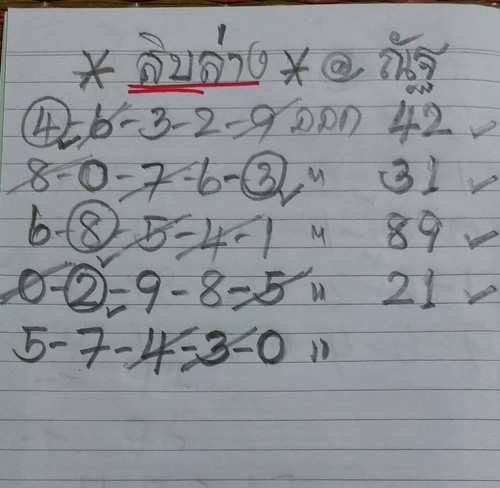 * สิบล่าง * @ ณัฐ
4-6-3-2-9 ออก 42 ✓
8-0-7-6-3 " 31 ✓
6-8-5-4-1 " 89 ✓
0-2-9-8-5 " 21 ✓
5-7-4-3-0 "